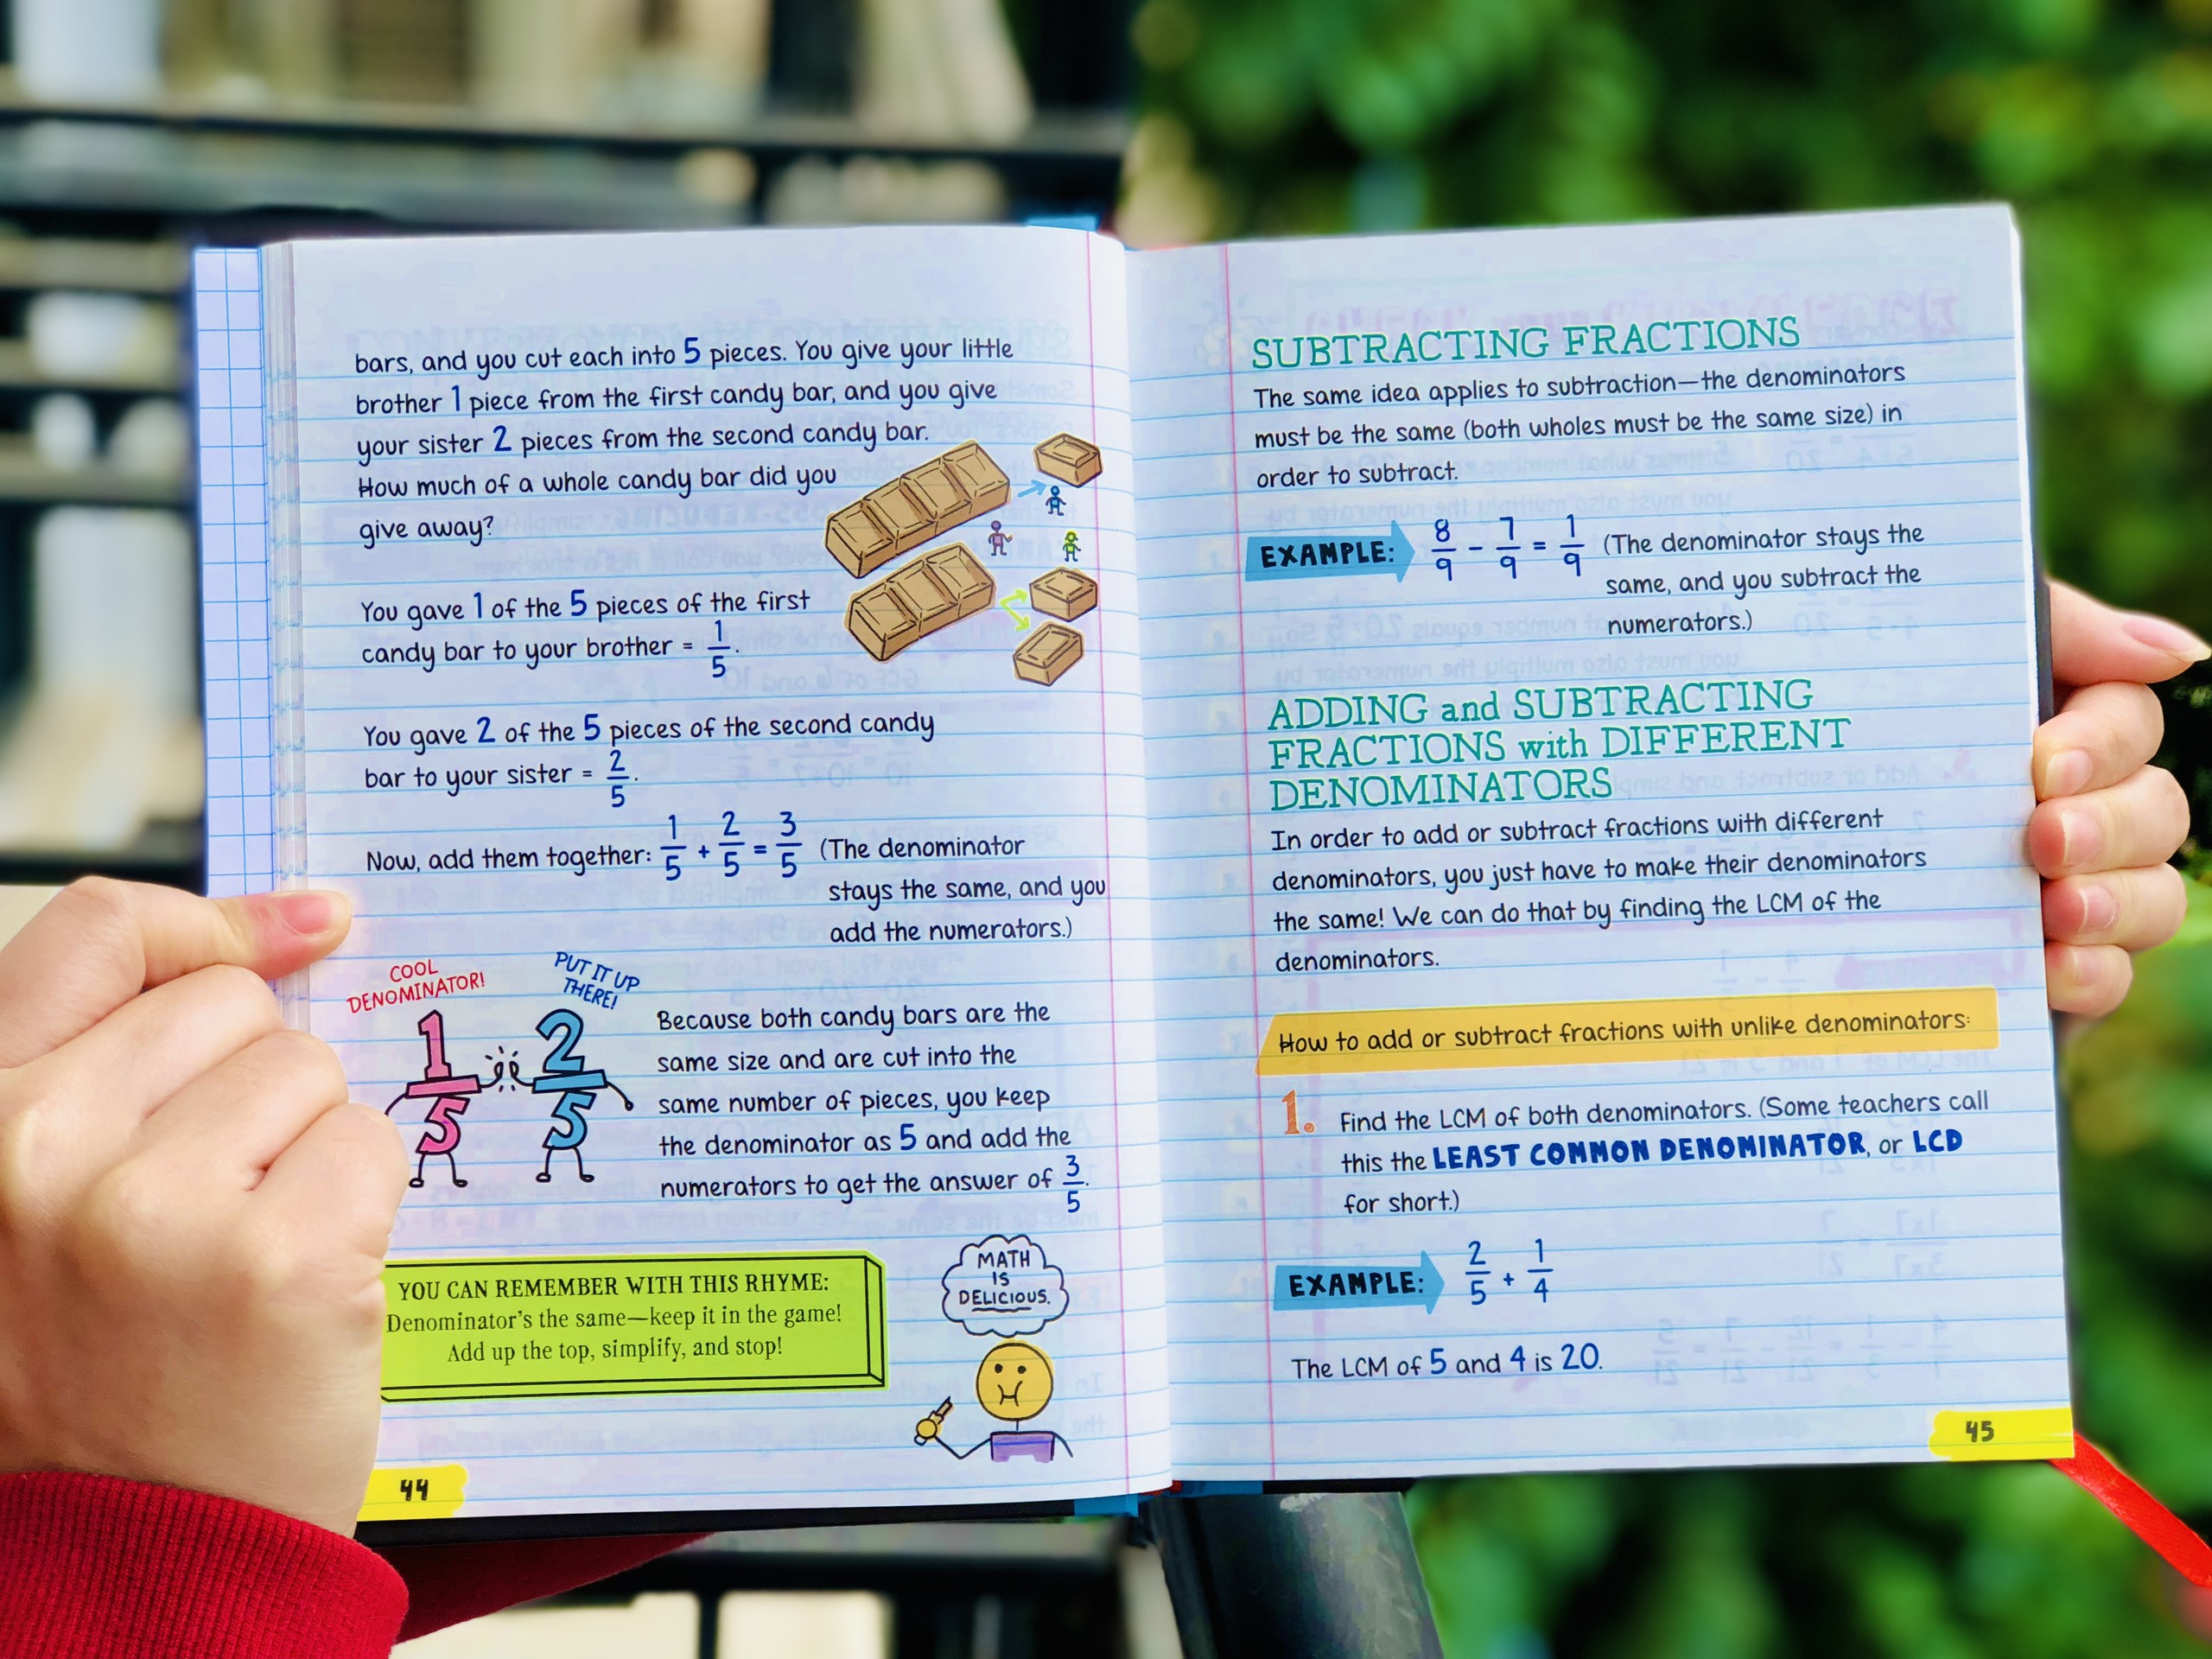 bars, and you cut each into 5 pieces. You give your little
brother 1 piece from the first candy bar, and you give
your sister 2 pieces from the second candy bar.
How much of a whole candy bar did you
give away?
You gave 1 of the 5 pieces of the first
candy bar to your brother = 1/5.
You gave 2 of the 5 pieces of the second candy
bar to your sister = 2/5.
Now, add them together: 1/5 + 2/5 = 3/5 (The denominator
stays the same, and you
add the numerators.)
COOL
DENOMINATOR!
PUT IT UP
THERE!
1/5
2/5
Because both candy bars are the
same size and are cut into the
same number of pieces, you keep
the denominator as 5 and add the
numerators to get the answer of 3/5.
YOU CAN REMEMBER WITH THIS RHYME:
Denominator's the same—keep it in the game!
Add up the top, simplify, and stop!
MATH
IS
DELICIOUS.
44
SUBTRACTING FRACTIONS
The same idea applies to subtraction—the denominators
must be the same (both wholes must be the same size) in
order to subtract.
EXAMPLE: 8/9 - 7/9 = 1/9 (The denominator stays the
same, and you subtract the
numerators.)
ADDING and SUBTRACTING
FRACTIONS with DIFFERENT
DENOMINATORS
In order to add or subtract fractions with different
denominators, you just have to make their denominators
the same! We can do that by finding the LCM of the
denominators.
How to add or subtract fractions with unlike denominators:
1. Find the LCM of both denominators. (Some teachers call
this the LEAST COMMON DENOMINATOR, or LCD
for short.)
EXAMPLE: 2/5 + 1/4
The LCM of 5 and 4 is 20.
45